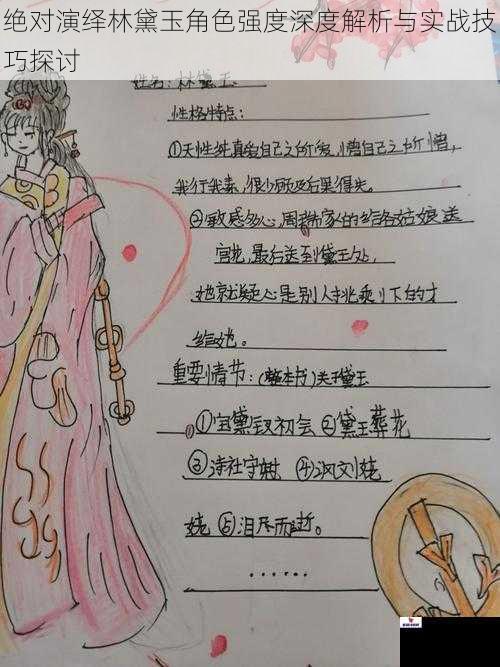 绝对演绎林黛玉角色强度深度解析与实战技
巧探讨
姓名：林黛玉
性格特点：
①天性纯真爱自己之所爱，憎自己之所憎，
我行我素，很少顾及后果得失。
②敏感多心，周瑞家的给各姑娘送
宫花，最后送到黛玉处，
她就疑心是别人挑乘刂下的才
给她。
重要情节：(整本书)关于黛玉
①宝黛钗初会 ②黛玉葬花
③诗社夺魁 ④讽刘姥
姥 ⑤泪尽而逝。
······